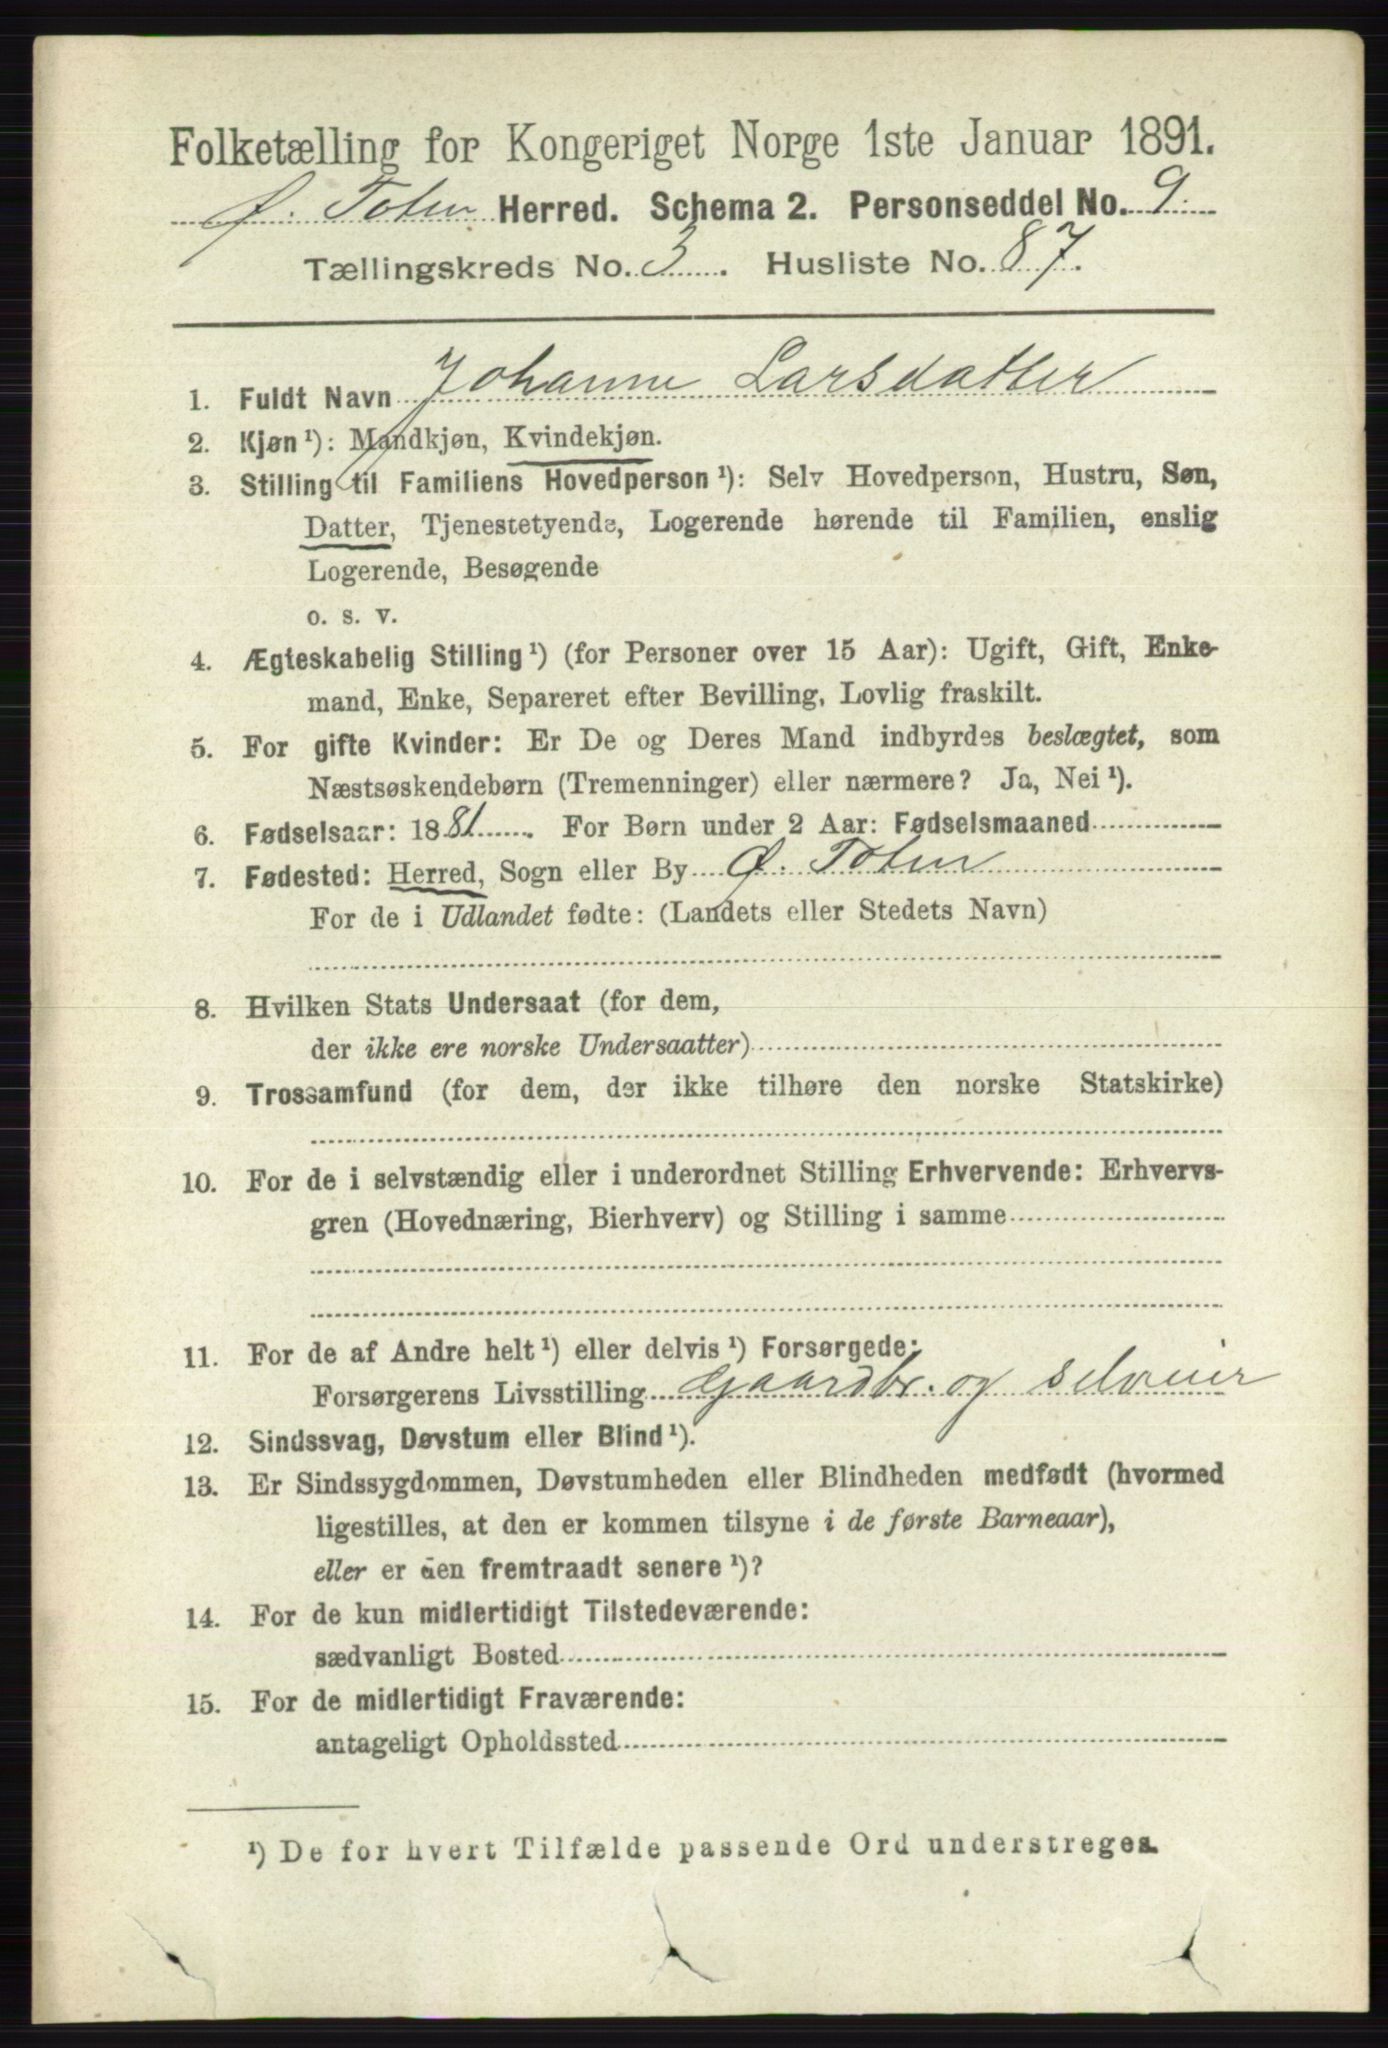 Folketælling for Kongeriget Norge 1ste Januar 1891.
Ø. Toten Herred. Schema 2. Personseddel No. 9.
Tællingskreds No. 3. Husliste No. 87.
1. Fuldt Navn Johanne Larsdatter
2. Kjøn ¹): Mandkjøn, Kvindekjøn.
3. Stilling til Familiens Hovedperson ¹): Selv Hovedperson, Hustru, Søn,
Datter, Tjenestetyende, Logerende hørende til Familien, enslig
Logerende, Besøgende
o. s. v.
4. Ægteskabelig Stilling ¹) (for Personer over 15 Aar): Ugift, Gift, Enke-
mand, Enke, Separeret efter Bevilling, Lovlig fraskilt.
5. For gifte Kvinder: Er De og Deres Mand indbyrdes beslægtet, som
Næstsøskendebørn (Tremenninger) eller nærmere? Ja, Nei ¹).
6. Fødselsaar: 1881. For Børn under 2 Aar: Fødselsmaaned
7. Fødested: Herred, Sogn eller By Ø. Toten
For de i Udlandet fødte: (Landets eller Stedets Navn)
8. Hvilken Stats Undersaat (for dem,
der ikke ere norske Undersaatter)
9. Trossamfund (for dem, der ikke tilhøre den norske Statskirke)
10. For de i selvstændig eller i underordnet Stilling Erhvervende: Erhvervs-
gren (Hovednæring, Bierhverv) og Stilling i samme
11. For de af Andre helt ¹) eller delvis ¹) Forsørgede:
Forsørgerens Livsstilling Gaardbr. og selveier
12. Sindssvag, Døvstum eller Blind ¹).
13. Er Sindssygdommen, Døvstumheden eller Blindheden medfødt (hvormed
ligestilles, at den er kommen tilsyne i de første Barneaar),
eller er den fremtraadt senere ¹)?
14. For de kun midlertidigt Tilstedeværende:
sædvanligt Bosted
15. For de midlertidigt Fraværende:
antageligt Opholdssted
¹) De for hvert Tilfælde passende Ord understreges.